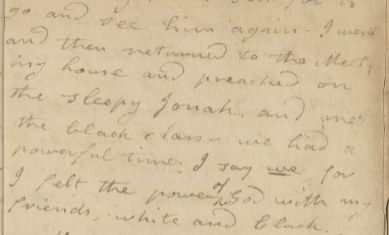 go and see him again - I went
and then returned to the Meet
ing house and preached on
the sleepy Jonah. and met
the black class - we had a
powerful time. I say we, for
I felt the power of God with my
friends, white and black.